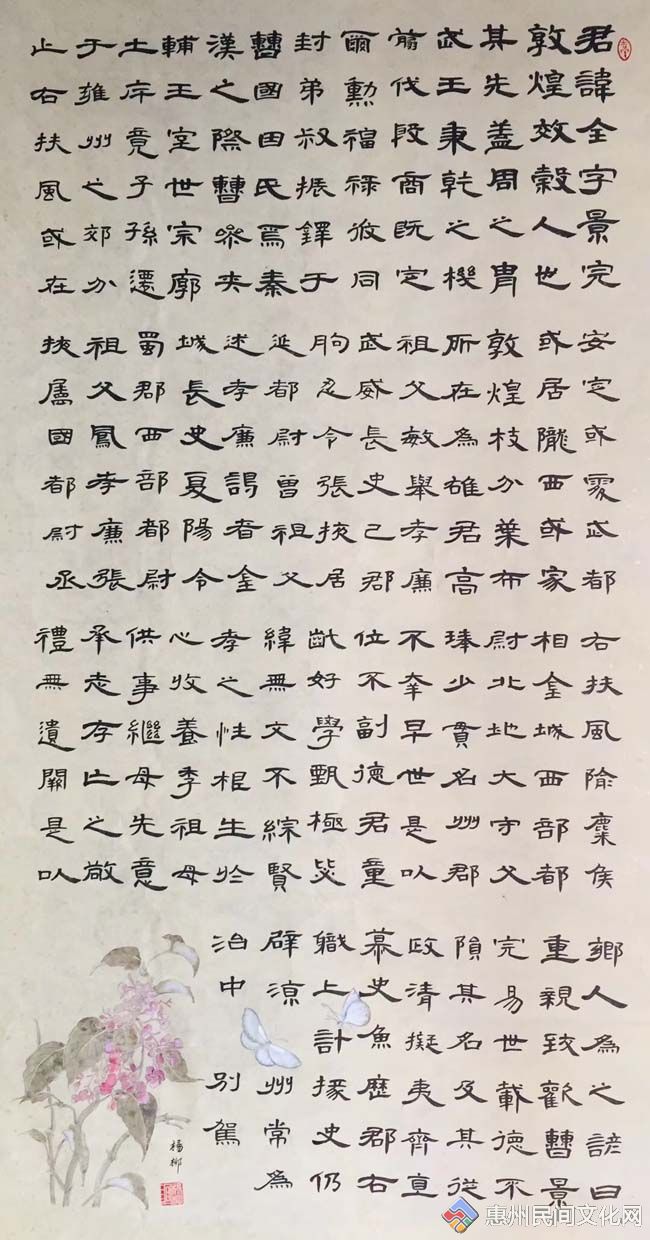 君諱全字景完
敦煌效穀人也
其先蓋周之胄
武王秉乾之機
翦伐殷商既定
爾勳福祿攸同
封弟叔振鐸于
曹國因氏焉秦
漢之際曹參夾
輔王室世宗廓
土斥竟子孫遷
于雍州之郊分
止右扶風或在
安定或處武都
或居隴西或家
敦煌枝分葉布
所在為雄君高
祖父敏舉孝廉
武威長史巴郡
朐忍令張掖居
延都尉曾祖父
述孝廉謁者金
城長史夏陽令
蜀郡西部都尉
祖父鳳孝廉張
掖屬國都尉丞
右扶風隃麋侯
相金城西部都
尉北地大守父
琫少貫名州郡
不幸早世是以
位不副德君童
齔好學甄極毖
緯無文不綜賢
孝之性根生於
心收養季祖母
供事繼母先意
承志存亡之敬
禮無遺闕是以
鄉人為之諺曰
重親致歡曹景
完易世載德不
隕其名及其從
政清擬夷齊直
慕史魚歷郡右
職上計掾史仍
辟涼州常為
治中別駕
楊柳
惠州民间文化网